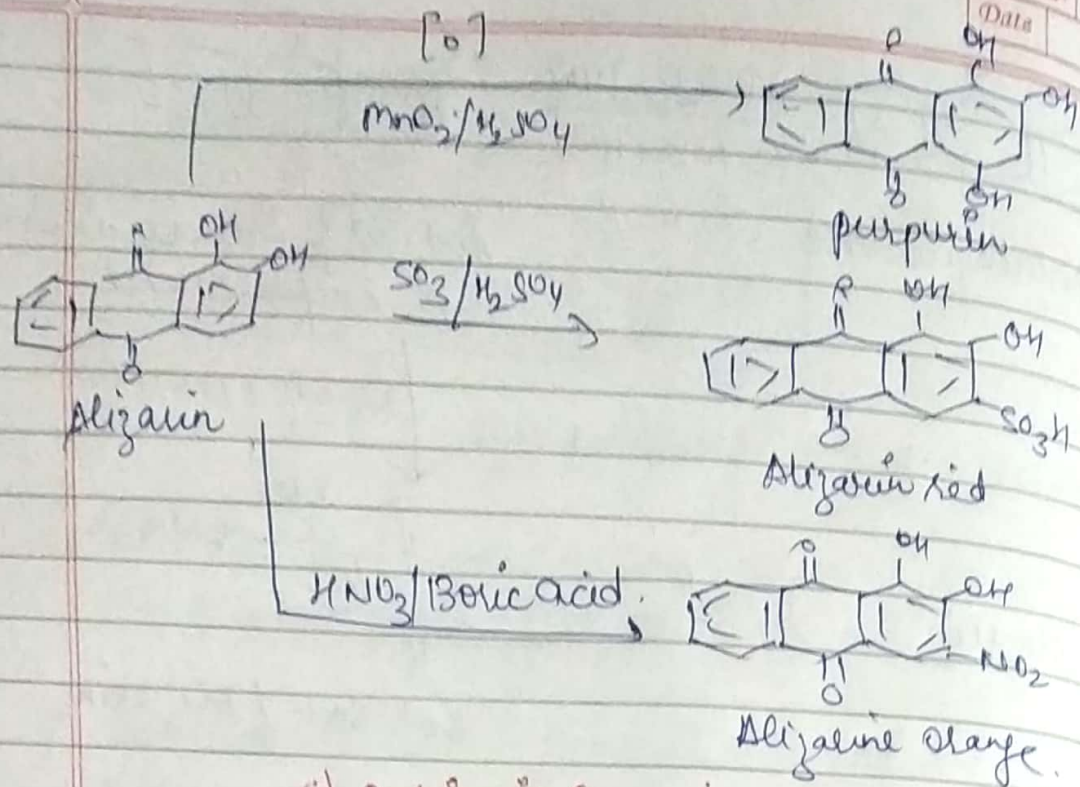 Date
[O]
MnO2/H2SO4
O OH
OH
O OH
purpurin
O OH
OH
O
Alizarin
SO3/H2SO4
O OH
OH
SO3H
O
Alizarin red
HNO3/Boric acid.
O OH
OH
NO2
O
Alizarine orange.